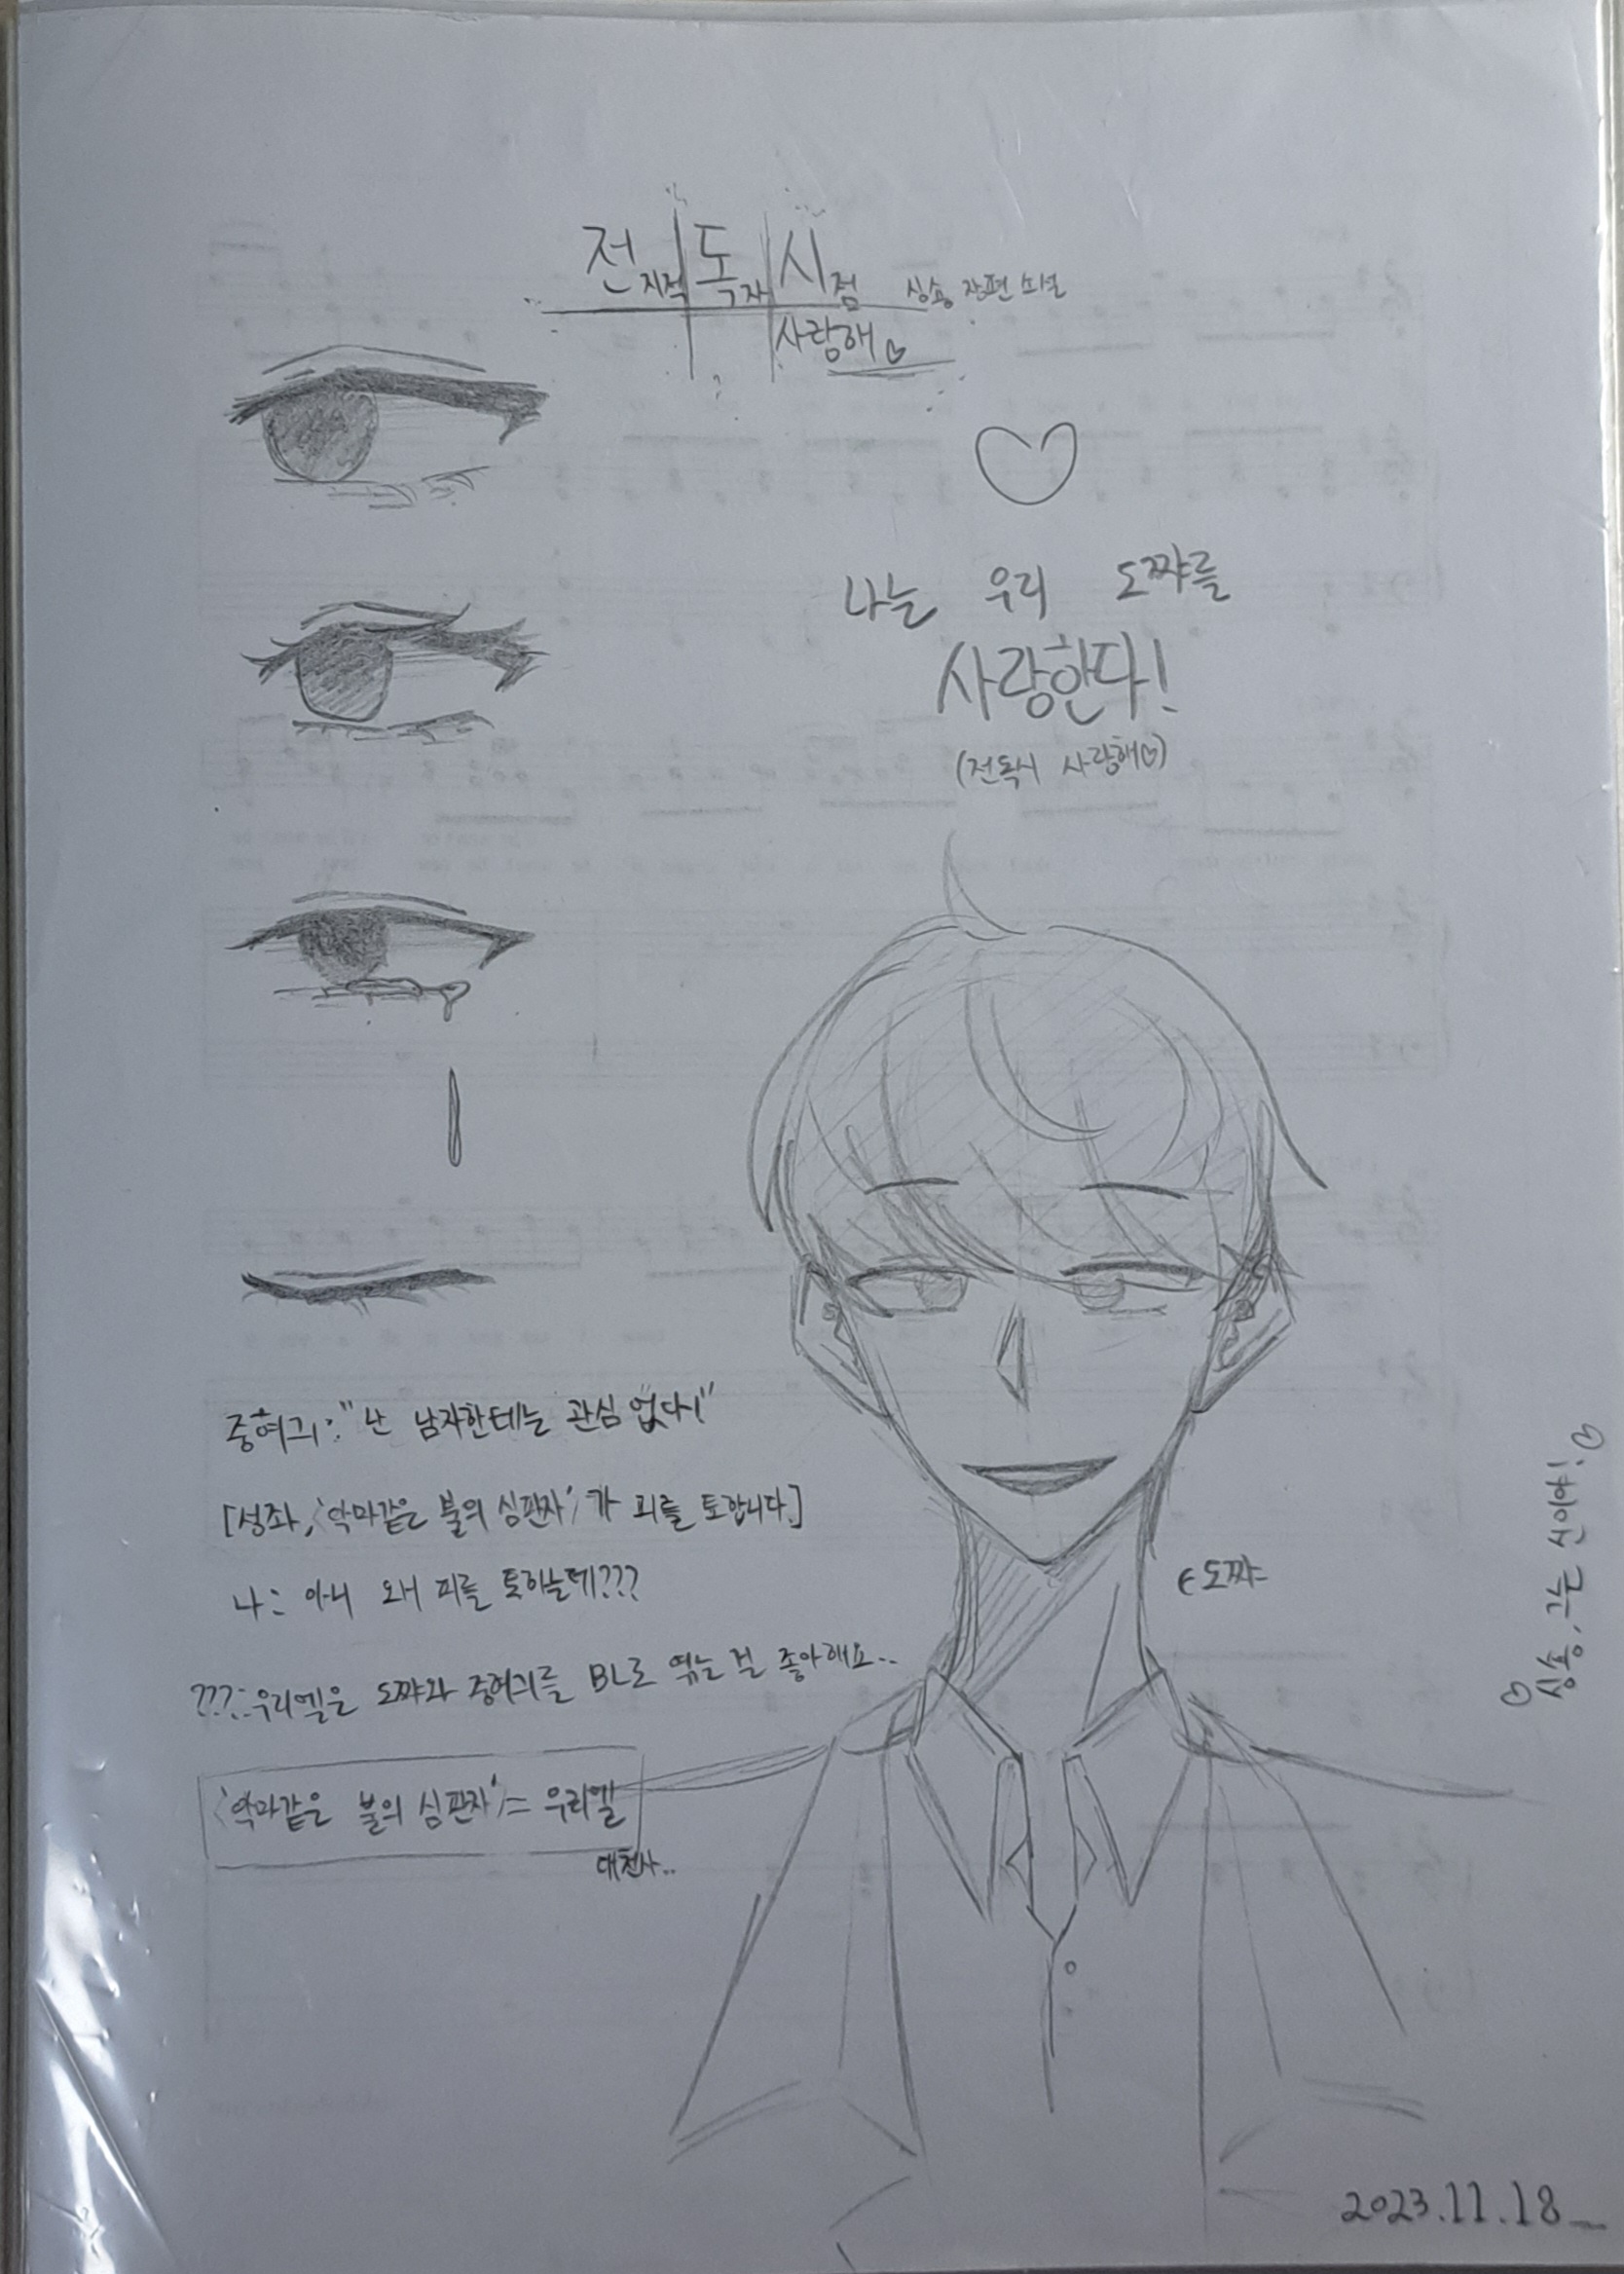 전지적 독자 시점 싱숑 장편소설
사랑해♡
나는 우리 도쨔를
사랑한다!
(전독시 사랑해♡)
중혀긔: "난 남자한테는 관심 없다!"
[성좌, '악마같은 불의 심판자'가 피를 토합니다.]
나: 아니 왜 피를 토하는데???
???: 우리엘은 도쨔와 중혀긔를 BL로 엮는 걸 좋아해요..
'악마같은 불의 심판자' = 우리엘
대천사..
←도쨔
♡싱숑, 그는 신이야!♡
2023.11.18_